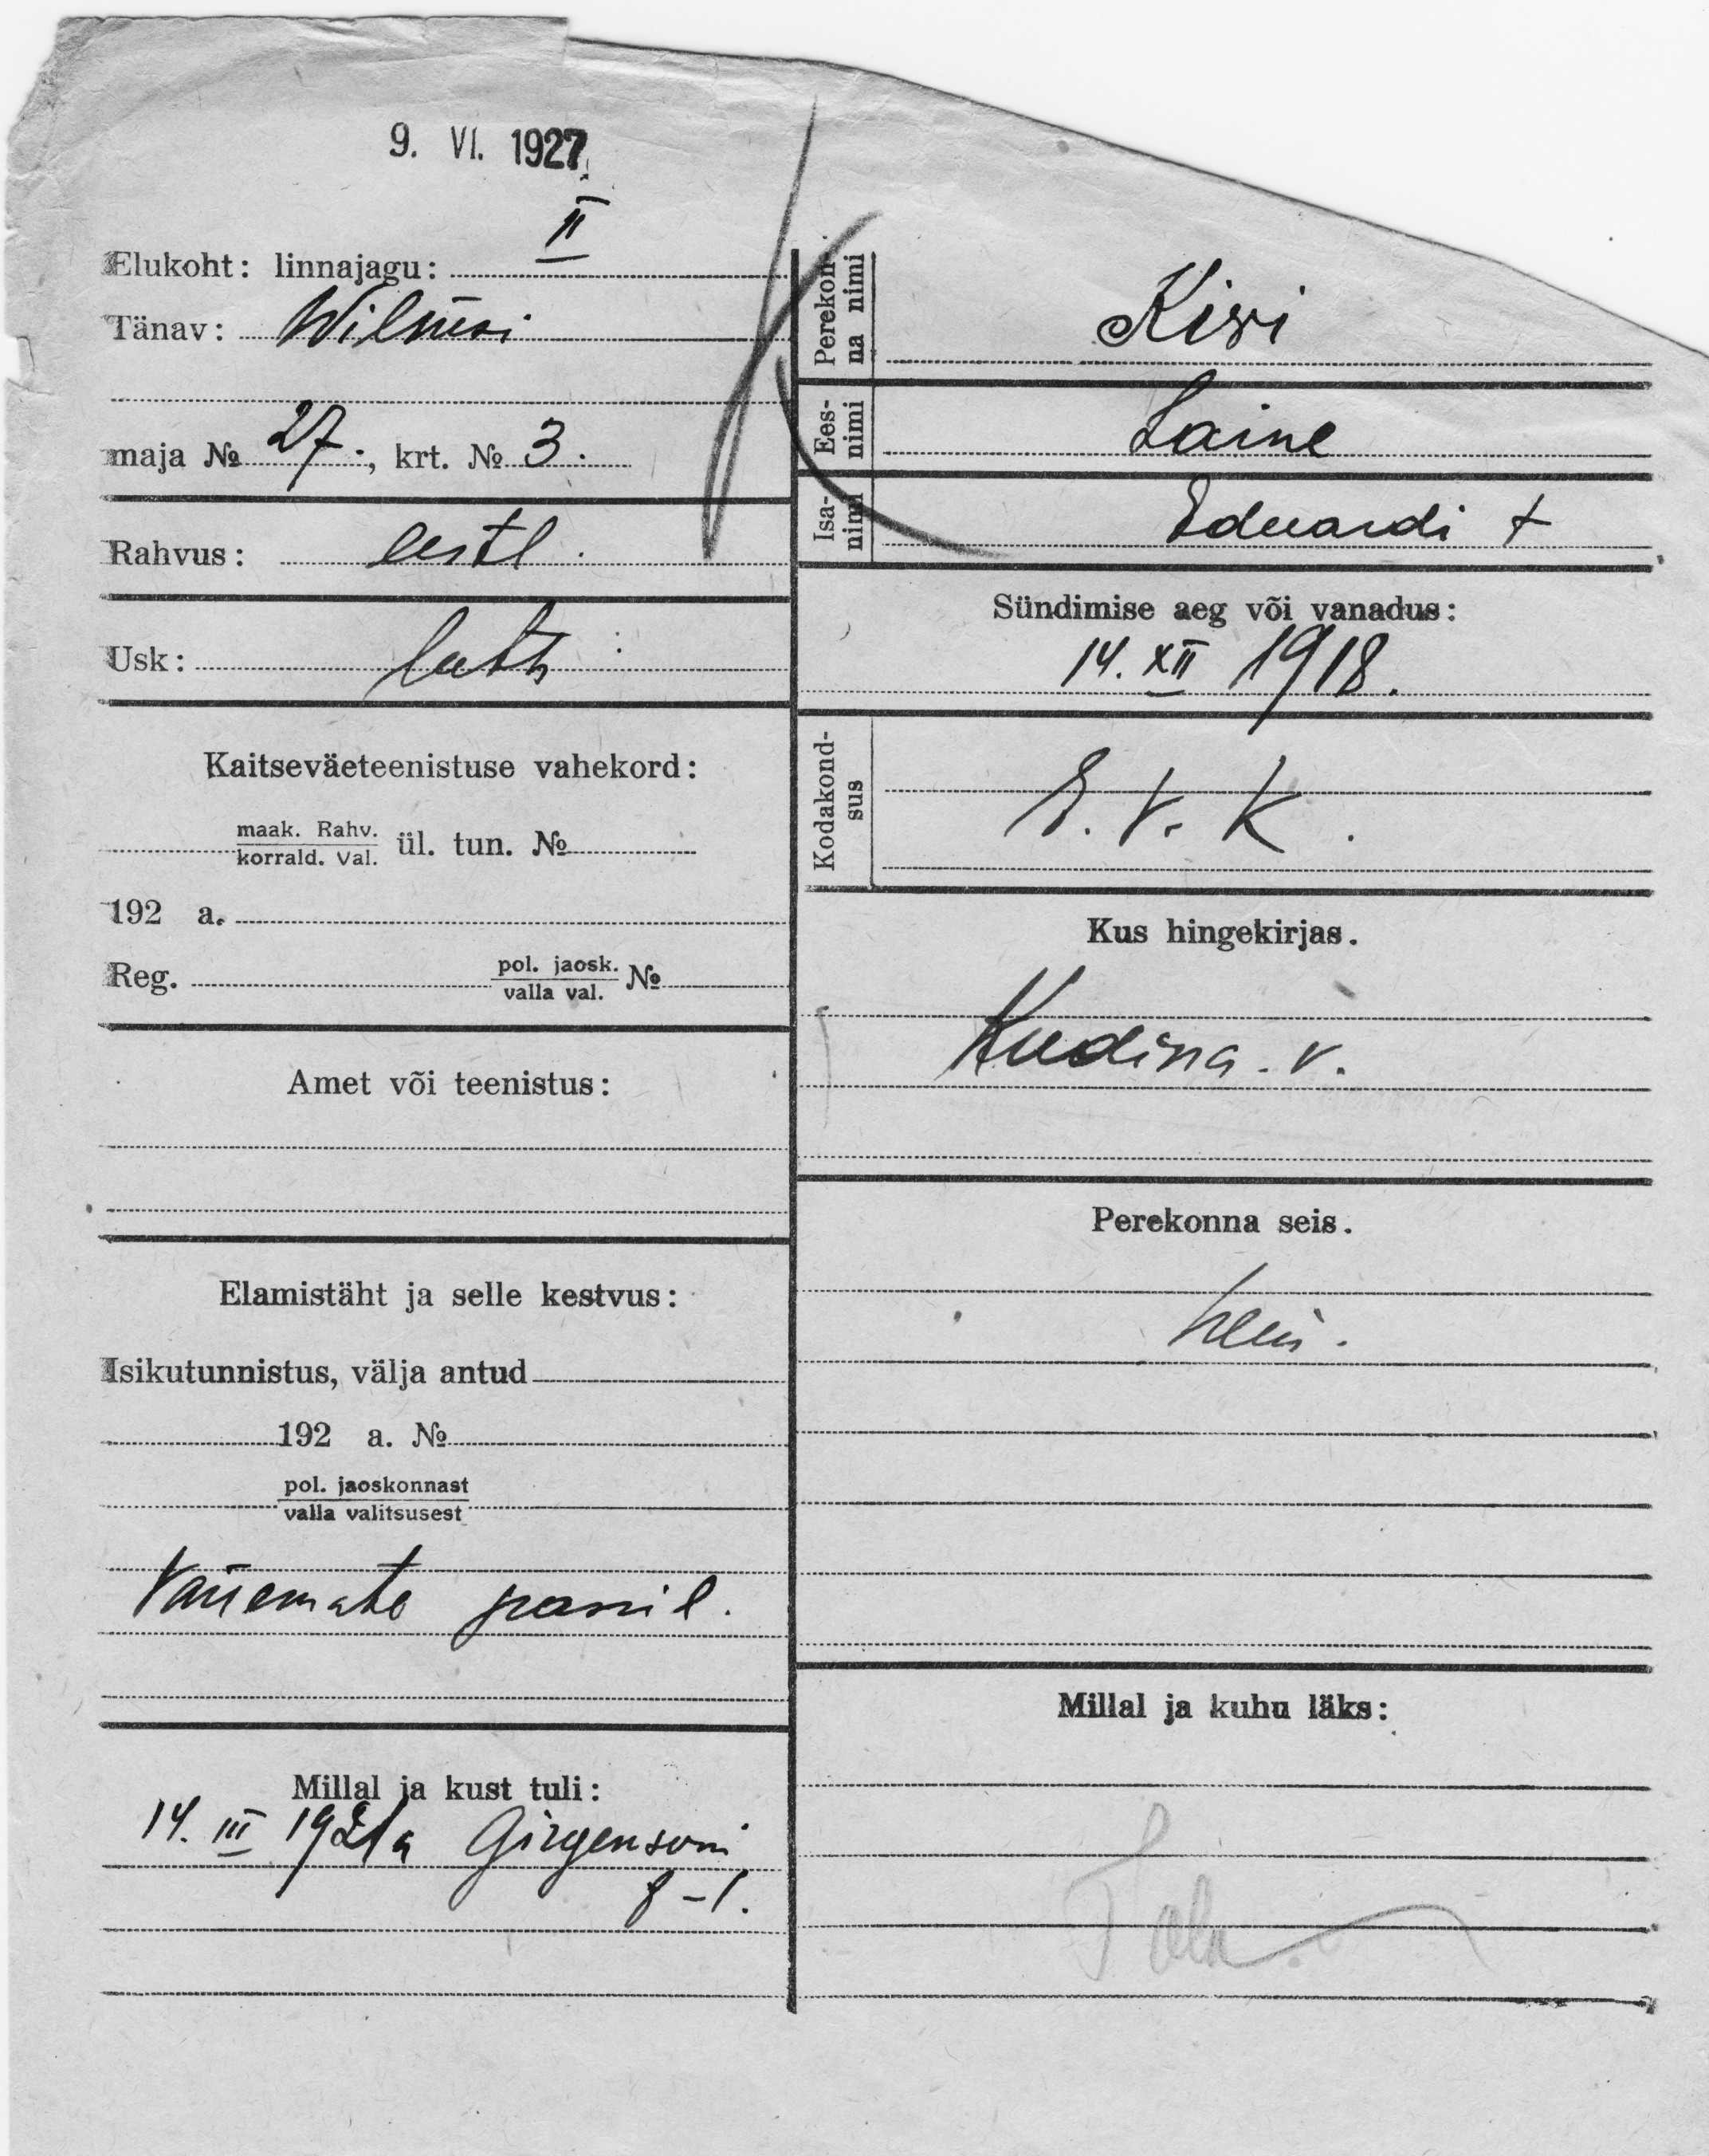 9. VI. 1927
II
Elukoht: linnajagu:
Tänav: Wilmsi
maja № 27., krt. № 3.
Rahvus: eestl.
Usk: luth
Kaitseväeteenistuse vahekord:
maak. Rahv.
korrald. Val. ül. tun. №
192 a.
Reg. pol. jaosk.
valla val. №
Amet või teenistus:
Elamistäht ja selle kestvus:
Isikutunnistus, välja antud
192 a. №
pol. jaoskonnast
valla valitsusest
Vanemate passil.
Millal ja kust tuli:
14. III 1921 a Girgensoni
8-1.
Perekon-
na nimi
Kiwi
Ees-
nimi
Laine
Isa-
nimi
Eduardi t
Sündimise aeg või vanadus:
14. XII 1918.
Kodakond-
sus
E. V. K.
Kus hingekirjas.
Kudina. v.
Perekonna seis.
Millal ja kuhu läks: